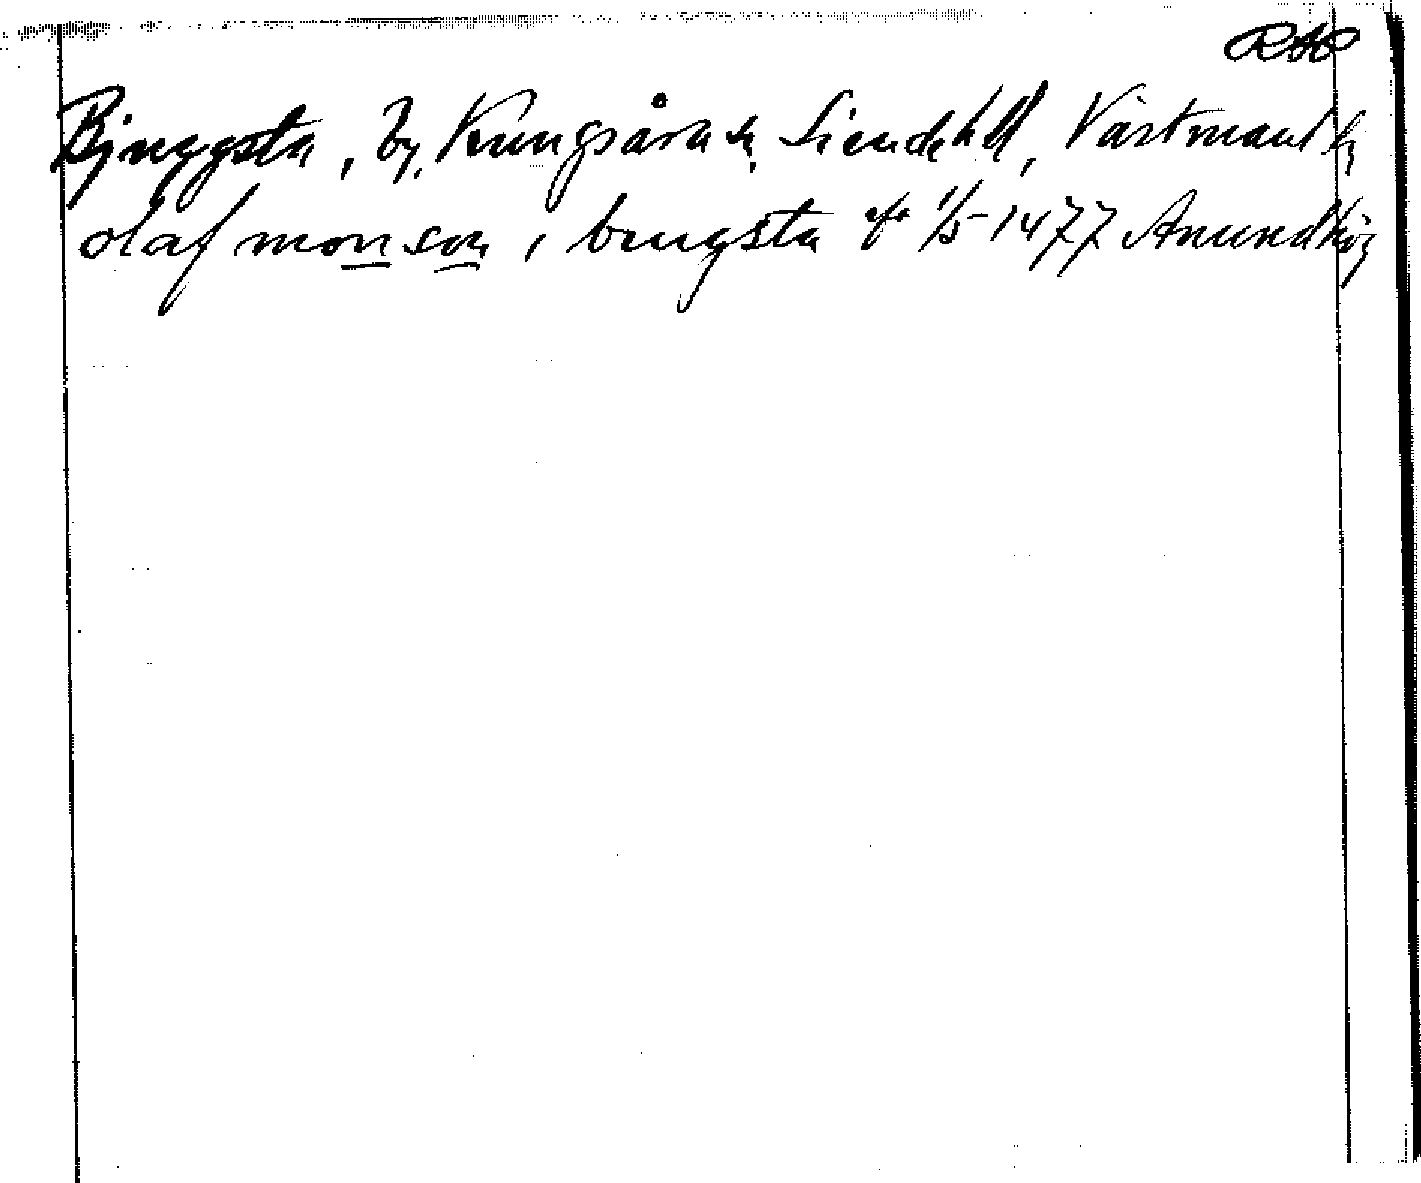 RAP
Bjuggsta, by, Kungsåra sn, Siende hd, Västmanl
olaf monson i brugsta 1/5 1477 Anundhög